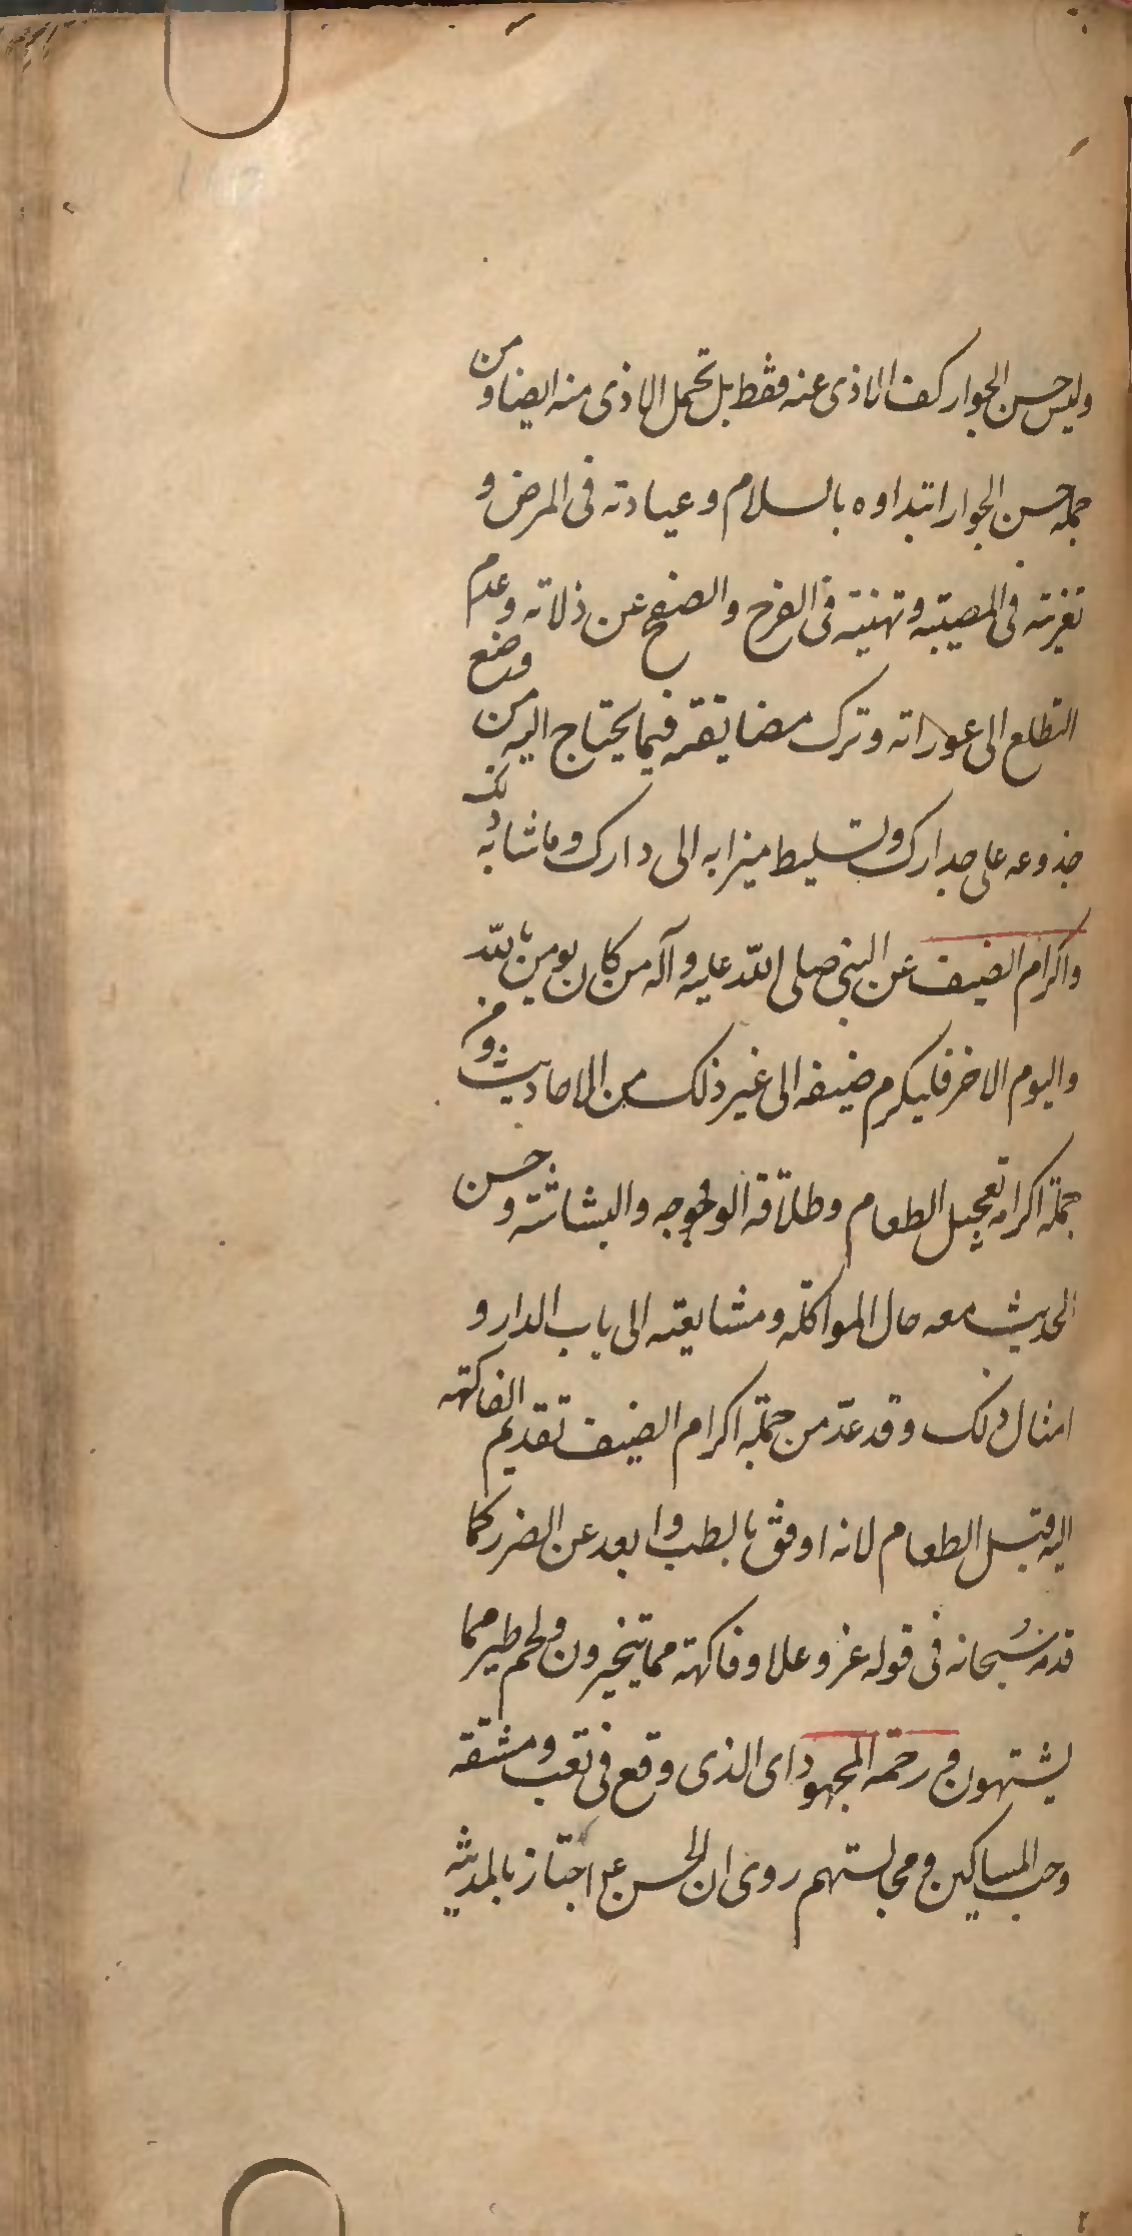 وليس حسن الجوار كف الاذى عنه فقط بل تحمل الاذى منه ايضا ومن
جملة حسن الجوار ابتداوه بالسلام وعيادته فى المرض و
تعزيته فى المصيبه وتهنيته فى الفرح والصفح عن ذلاته وعدم
التطلع الى عوراته وترك مضايقته فيما يحتاج اليه من وضع
جذوعه على جدارك وتسليط ميزابه الى دارك وما شابه ذلك
واكرام الضيف عن النبى صلى الله عليه وآله من كان يومن بالله
واليوم الاخر فليكرم ضيفه الى غير ذلك من الاحاديث ومن
جملة اكرامه تعجيل الطعام وطلاقة الوجوجه والبشاشة وحسن
الحديث معه حال المواكلة ومشايعته الى باب الدار و
امثال ذلك وقد عدّ من جملة اكرام الضيف تقديم الفاكهة
اليه قبل الطعام لانه اوفق بالطب وابعد عن الضرر كما
قدمه سبحانه فى قوله عز وعلا وفاكهة مما يتخيرون ولحم طير مما
يشتهون ورحمه المجهود اى الذى وقع فى تعب ومشقة
وحب المساكين ومجالستهم روى ان الحسن ع اجتاز بالمدينه